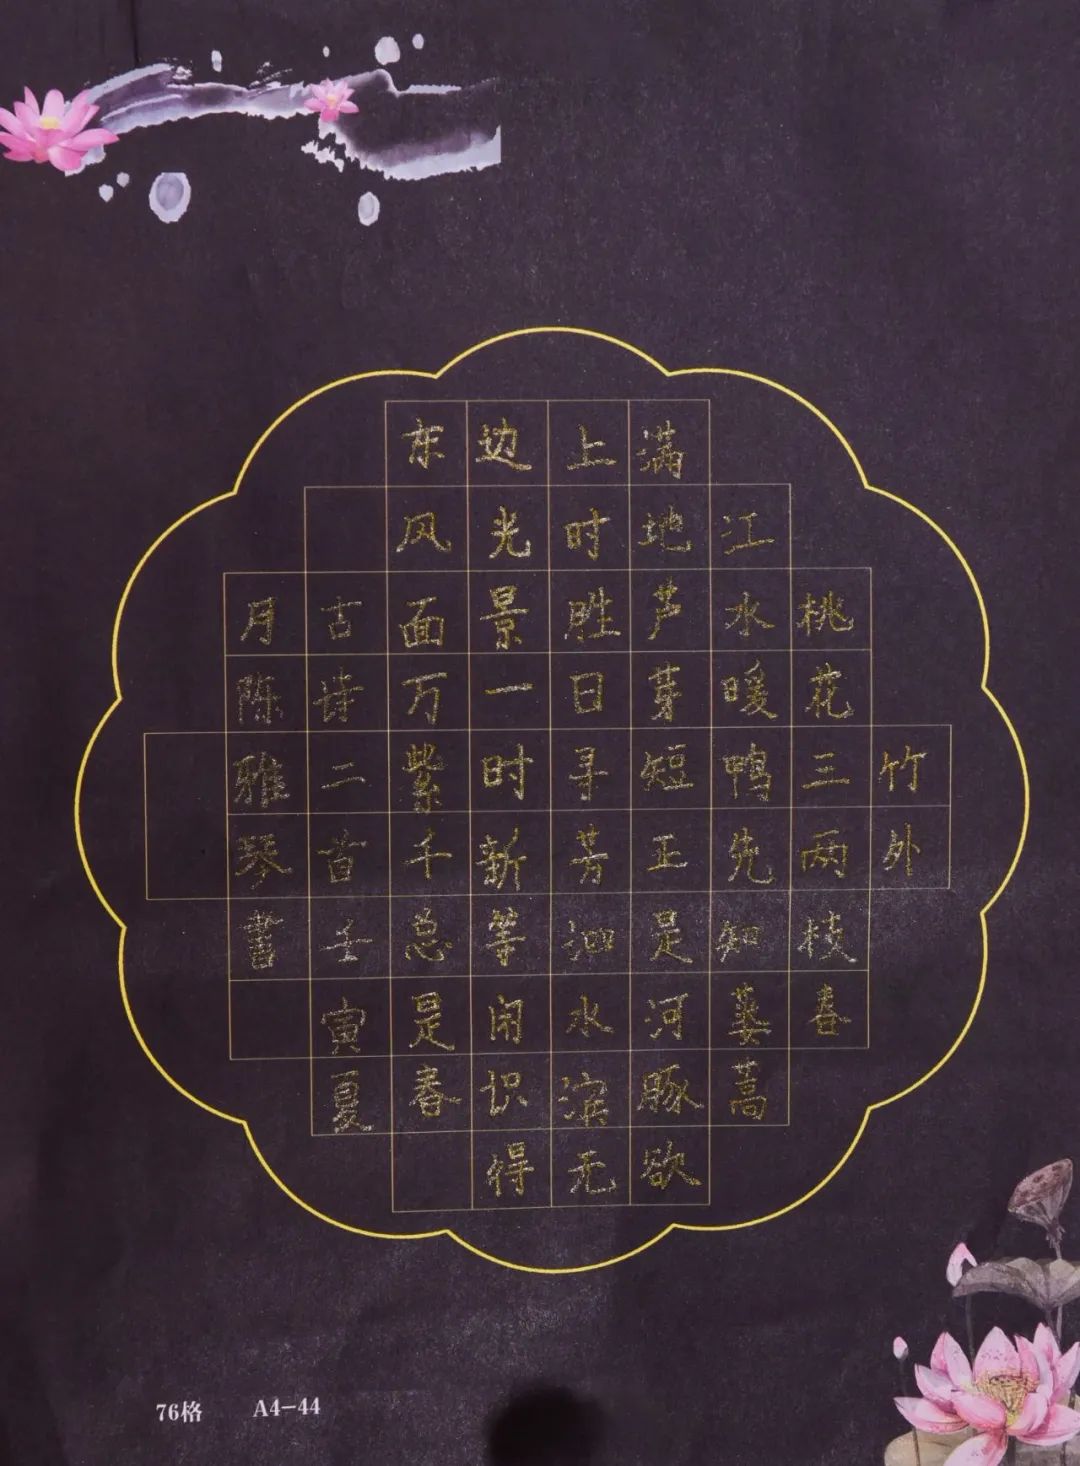 竹外
桃花三两枝春
江水暖鸭先知蒌蒿
满地芦芽短正是河豚欲
上时胜日寻芳泗水滨无
边光景一时新等闲识得
东风面万紫千总是春
古诗二首壬寅夏
月陈雅琴書
76格 A4-44